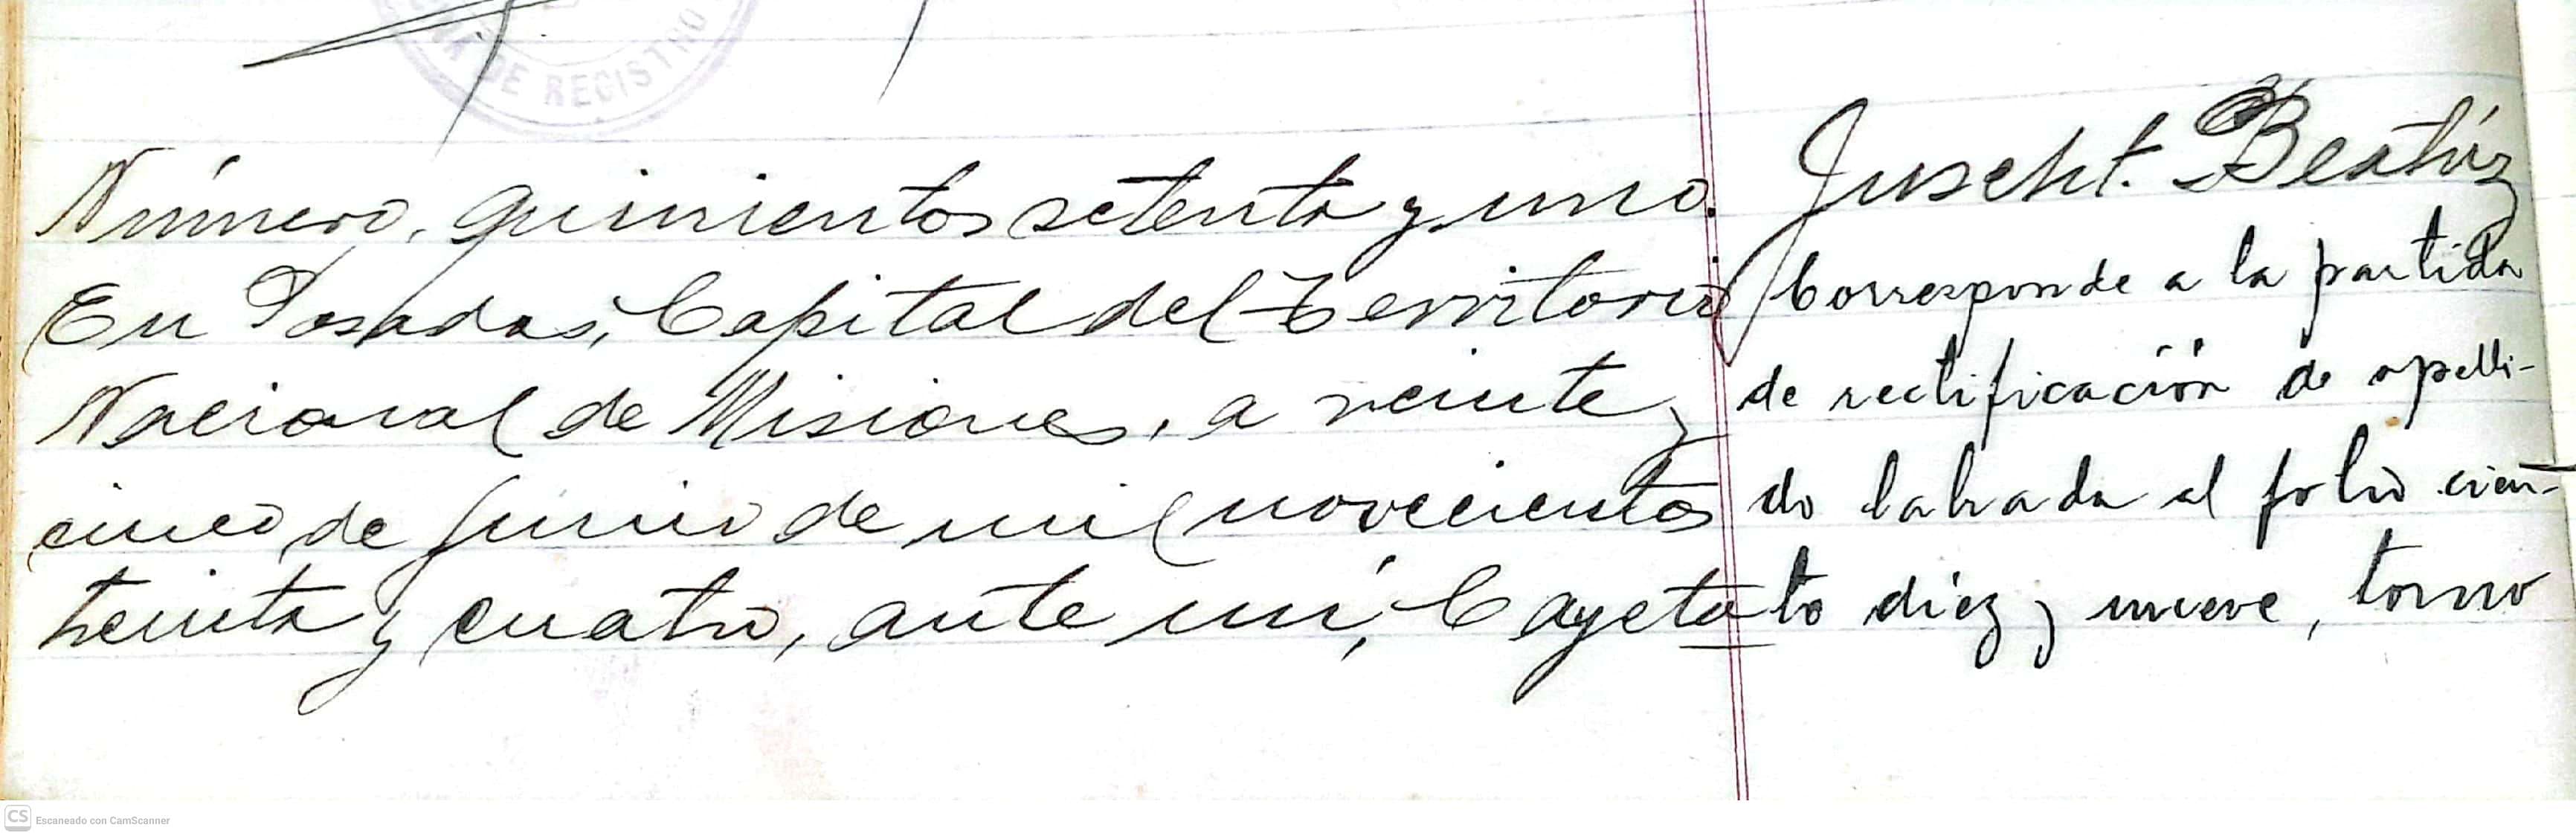 NA DE REGISTRO
Número, quinientos setenta y uno.
En Posadas, Capital del Territorio
Nacional de Misiones, a veinte y
cinco de Junio de mil novecientos
treinta y cuatro, ante mí, Cayeta
Juscht. Beatríz
Corresponde a la partida
de rectificación de apelli-
do labrada al folio cien-
to diez y nueve, tomo
CS Escaneado con CamScanner